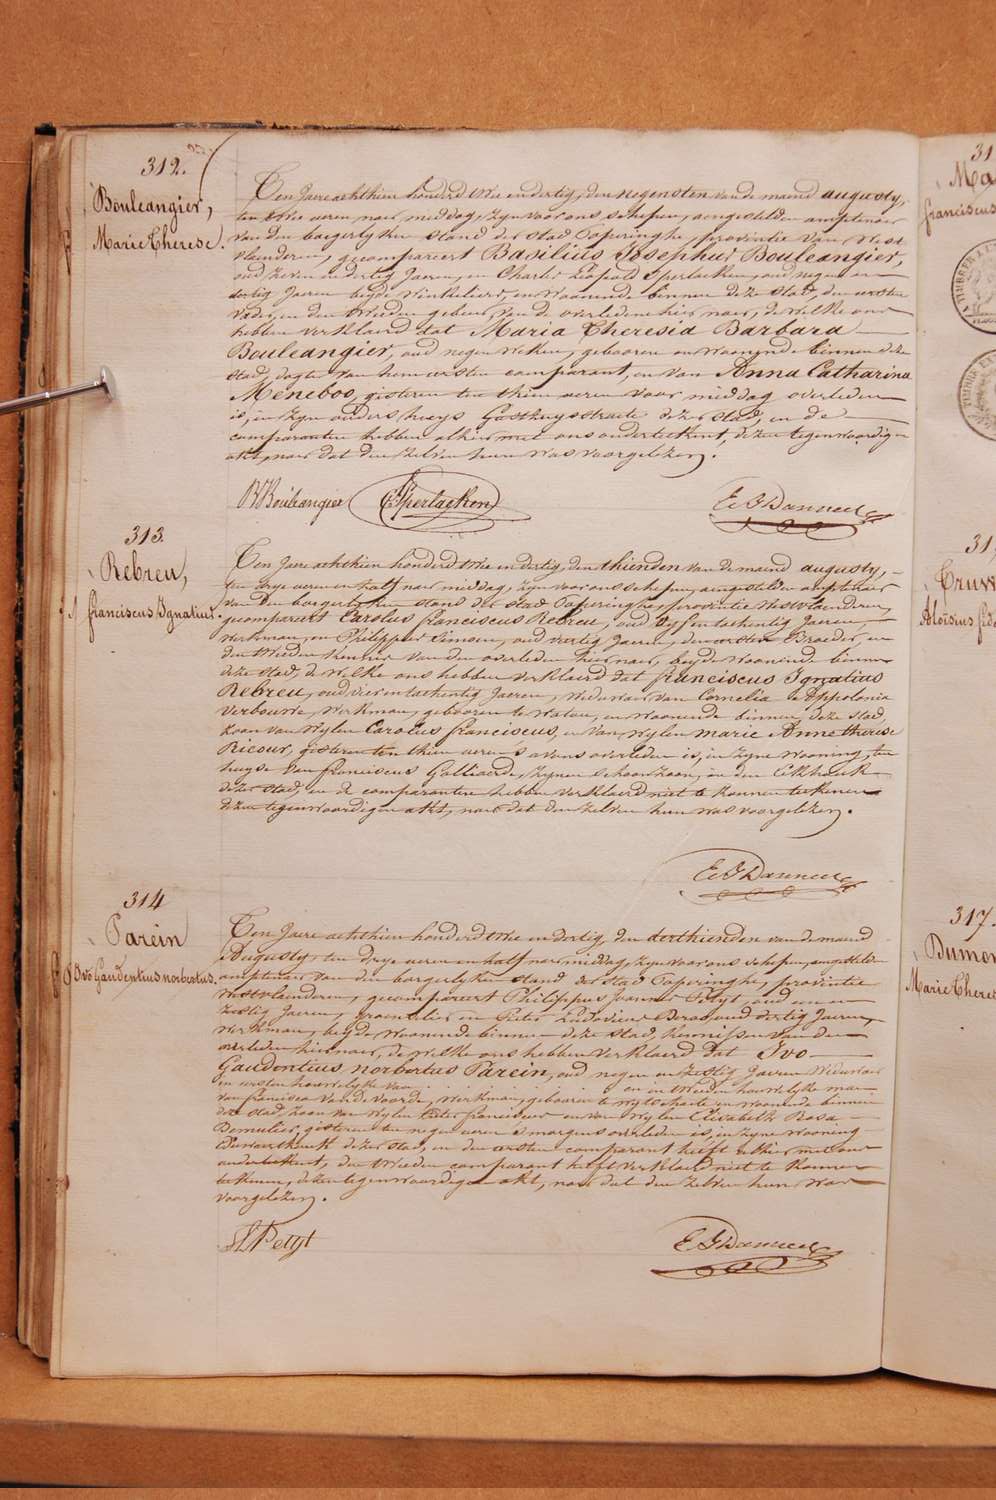 312.
Bouleangier,
Marie Therese.
Ten Jaere achthien honderd twee en dertig, den negensten van de maend augusty,
ten twee ueren naer middag, zyn voor ons schepen, aengestelden amptenaer
van den borgerlyken stand der stad Poperinghe, provintie van West
vlaenderen, gecompareert Basilius Josephus Bouleangier,
oud zeven en dertig Jaeren, en Charles Léopold Sperlaeken, oud negen en
dertig Jaeren beyde winkeliers, en woonende binnen deze stad, den eersten
vader, en den tweeden gebeur van de overledene hier naer, de welke ons
hebben verklaerd dat Maria Theresia Barbara
Bouleangier, oud negen weken, gebooren en woonende binnen deze
stad, dogter van hem eersten comparant, en van Anna Catharina
Meneboo, gisteren ten thien ueren voor middag overleden
is, in zyn ouders huys Gasthuysstraete dezer stad, en de
comparanten hebben alhier met ons onderteekent, dezen tegenwoordigen
akt, naer dat den zelven hun was voorgelezen.
B Bouleangier
C Sperlaeken
E J Danneel
313.
Rebreu,
franciscus Ignatius.
Ten Jaere achthien honderd twee en dertig, den thienden van de maend augusty,
ten drye ueren en half naer middag, zyn voor ons schepen, aengestelden amptenaer
van den borgerlyken stand der stad Poperinghe, provintie Westvlaenderen,
gecompareert Carolus franciscus Rebreu, oud vyf en tachentig Jaeren,
werkman, en Philippus Simoen, oud veertig Jaeren, den eersten Broeder, en
den tweeden kennis van den overleden hier naer, beyde woonende binnen
deze stad, de welke ons hebben verklaerd dat franciscus Ignatius
Rebreu, oud vier en tachentig Jaeren, weduwaer van Cornelia Appolonia
Verbouwe, werkman, gebooren te Watou, en woonende binnen deze stad,
zoon van wylen Carolus franciscus, en van wylen marie Anne therese
Ricour, gisteren ten thien ueren 's avens overleden is, in zyne wooning, ten
huyse van franciscus Galliaerde, zynen schoonzoon, in den Eekhoek
dezer stad, en de comparanten hebben verklaerd niet te konnen teekenen
dezen tegenwoordigen akt, naer dat den zelven hun was voorgelezen.
E J Danneel
314
Parein
Ivo Gaudentius norbertus.
Ten Jaere achthien honderd twee en dertig, den derthienden van de maend
Augusty, ten drye ueren en half naer middag, zyn voor ons schepen, aengestelden
amptenaer van den borgerlyken stand der stad Poperinghe, provintie
Westvlaenderen, gecompareert Philippus Joannes Petyt, oud een en
zestig Jaeren, en Pieter Ludovicus oud dertig Jaeren,
werkman, beyde woonende binnen deze stad, kennissen van den
overleden hier naer, de welke ons hebben verklaerd dat Ivo
Gaudentius norbertus Parein, oud negen en zestig Jaeren weduwaer
in eersten houwelyke van . . . . . . . . . en in tweeden houwelyke
van francisca Vande Voorde, werkman, gebooren te wytschaete en woonende binnen
deze stad, zoon van wylen Pieter franciscus en van wylen Elisabeth Rosa
Demulier, gisteren ten negen ueren 's morgens overleden is, in zyne wooning
dezer stad, en den eersten comparant heeft alhier met ons
onderteekent, den tweeden comparant heeft verklaerd niet te konnen
teekenen, dezen tegenwoordigen akt, naer dat den zelven hun was
voorgelezen.
Petyt
E J Danneel
franciscus
Aloisius
317.
Marie Therese